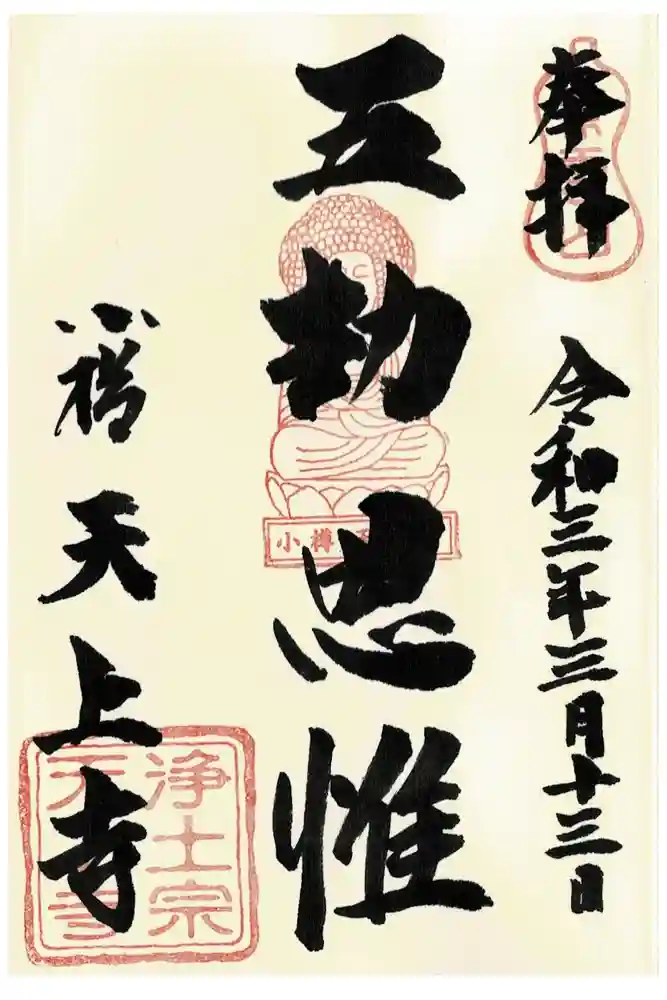 奉拝
令和三年三月十三日
五劫思惟
小樽
小樽天上寺
浄土宗
天上寺